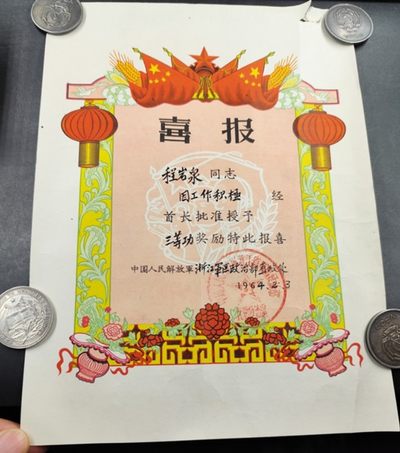 喜报
程岩泉 同志
因工作积极 经
首长批准授予
三等功奖励特此报喜
中国人民解放軍浙江军区政治部
1964.2.3